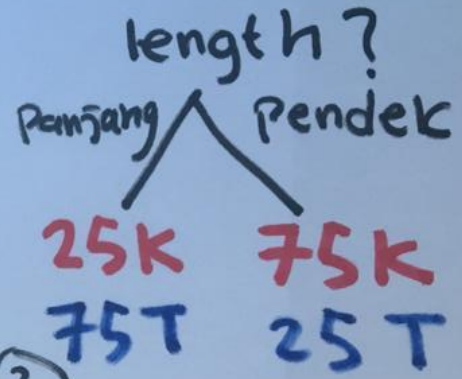 length?
Panjang Pendek
25K 75K
75T 25T